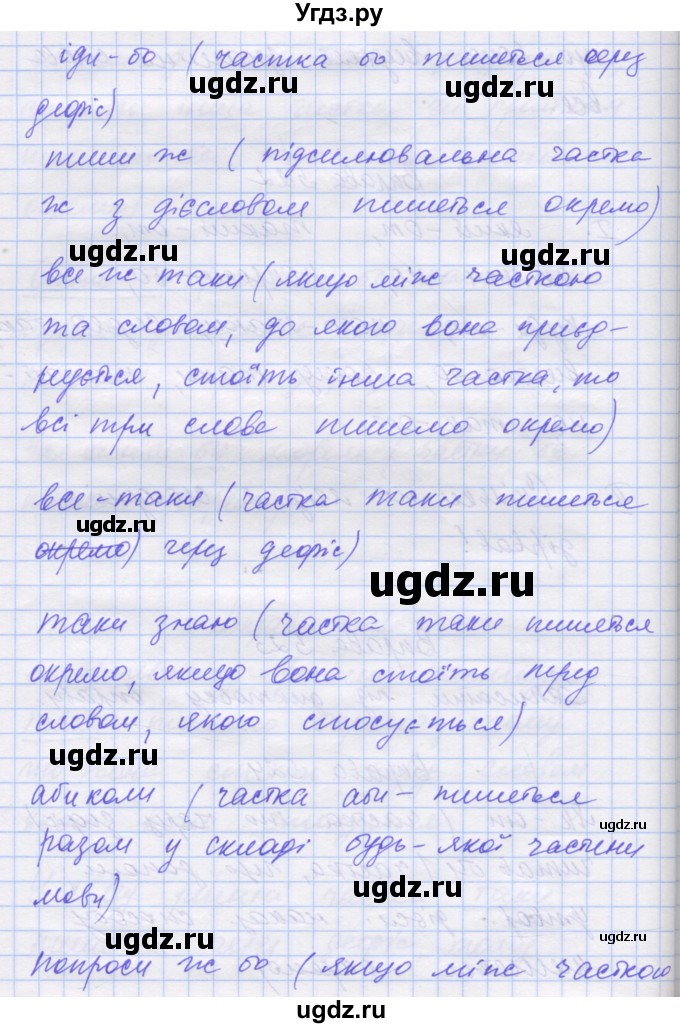 Угдз.ру
іди-бо (частка бо пишеться через
дефіс)
пиши ж (підсилювальна частка
ж з дієсловом пишеться окремо)
все ж таки (якщо між часткою
та словом, до якого вона приєд-
нується, стоїть інша частка, то
всі три слова пишемо окремо)
все-таки (частка таки пишеться
окремо) через дефіс)
таки знаю (частка таки пишеться
окремо, якщо вона стоїть перед
словом, якого стосується)
абиколи (частка аби- пишеться
разом у складі будь-якої частини
мови)
попроси ж бо (якщо між часткою
ugdz.ru
ugdz.ru
ugdz.ru
ugdz.ru
ugdz.ru
ugdz.ru
ugdz.ru
ugdz.ru
ugdz.ru
ugdz.ru
ugdz.ru
ugdz.ru